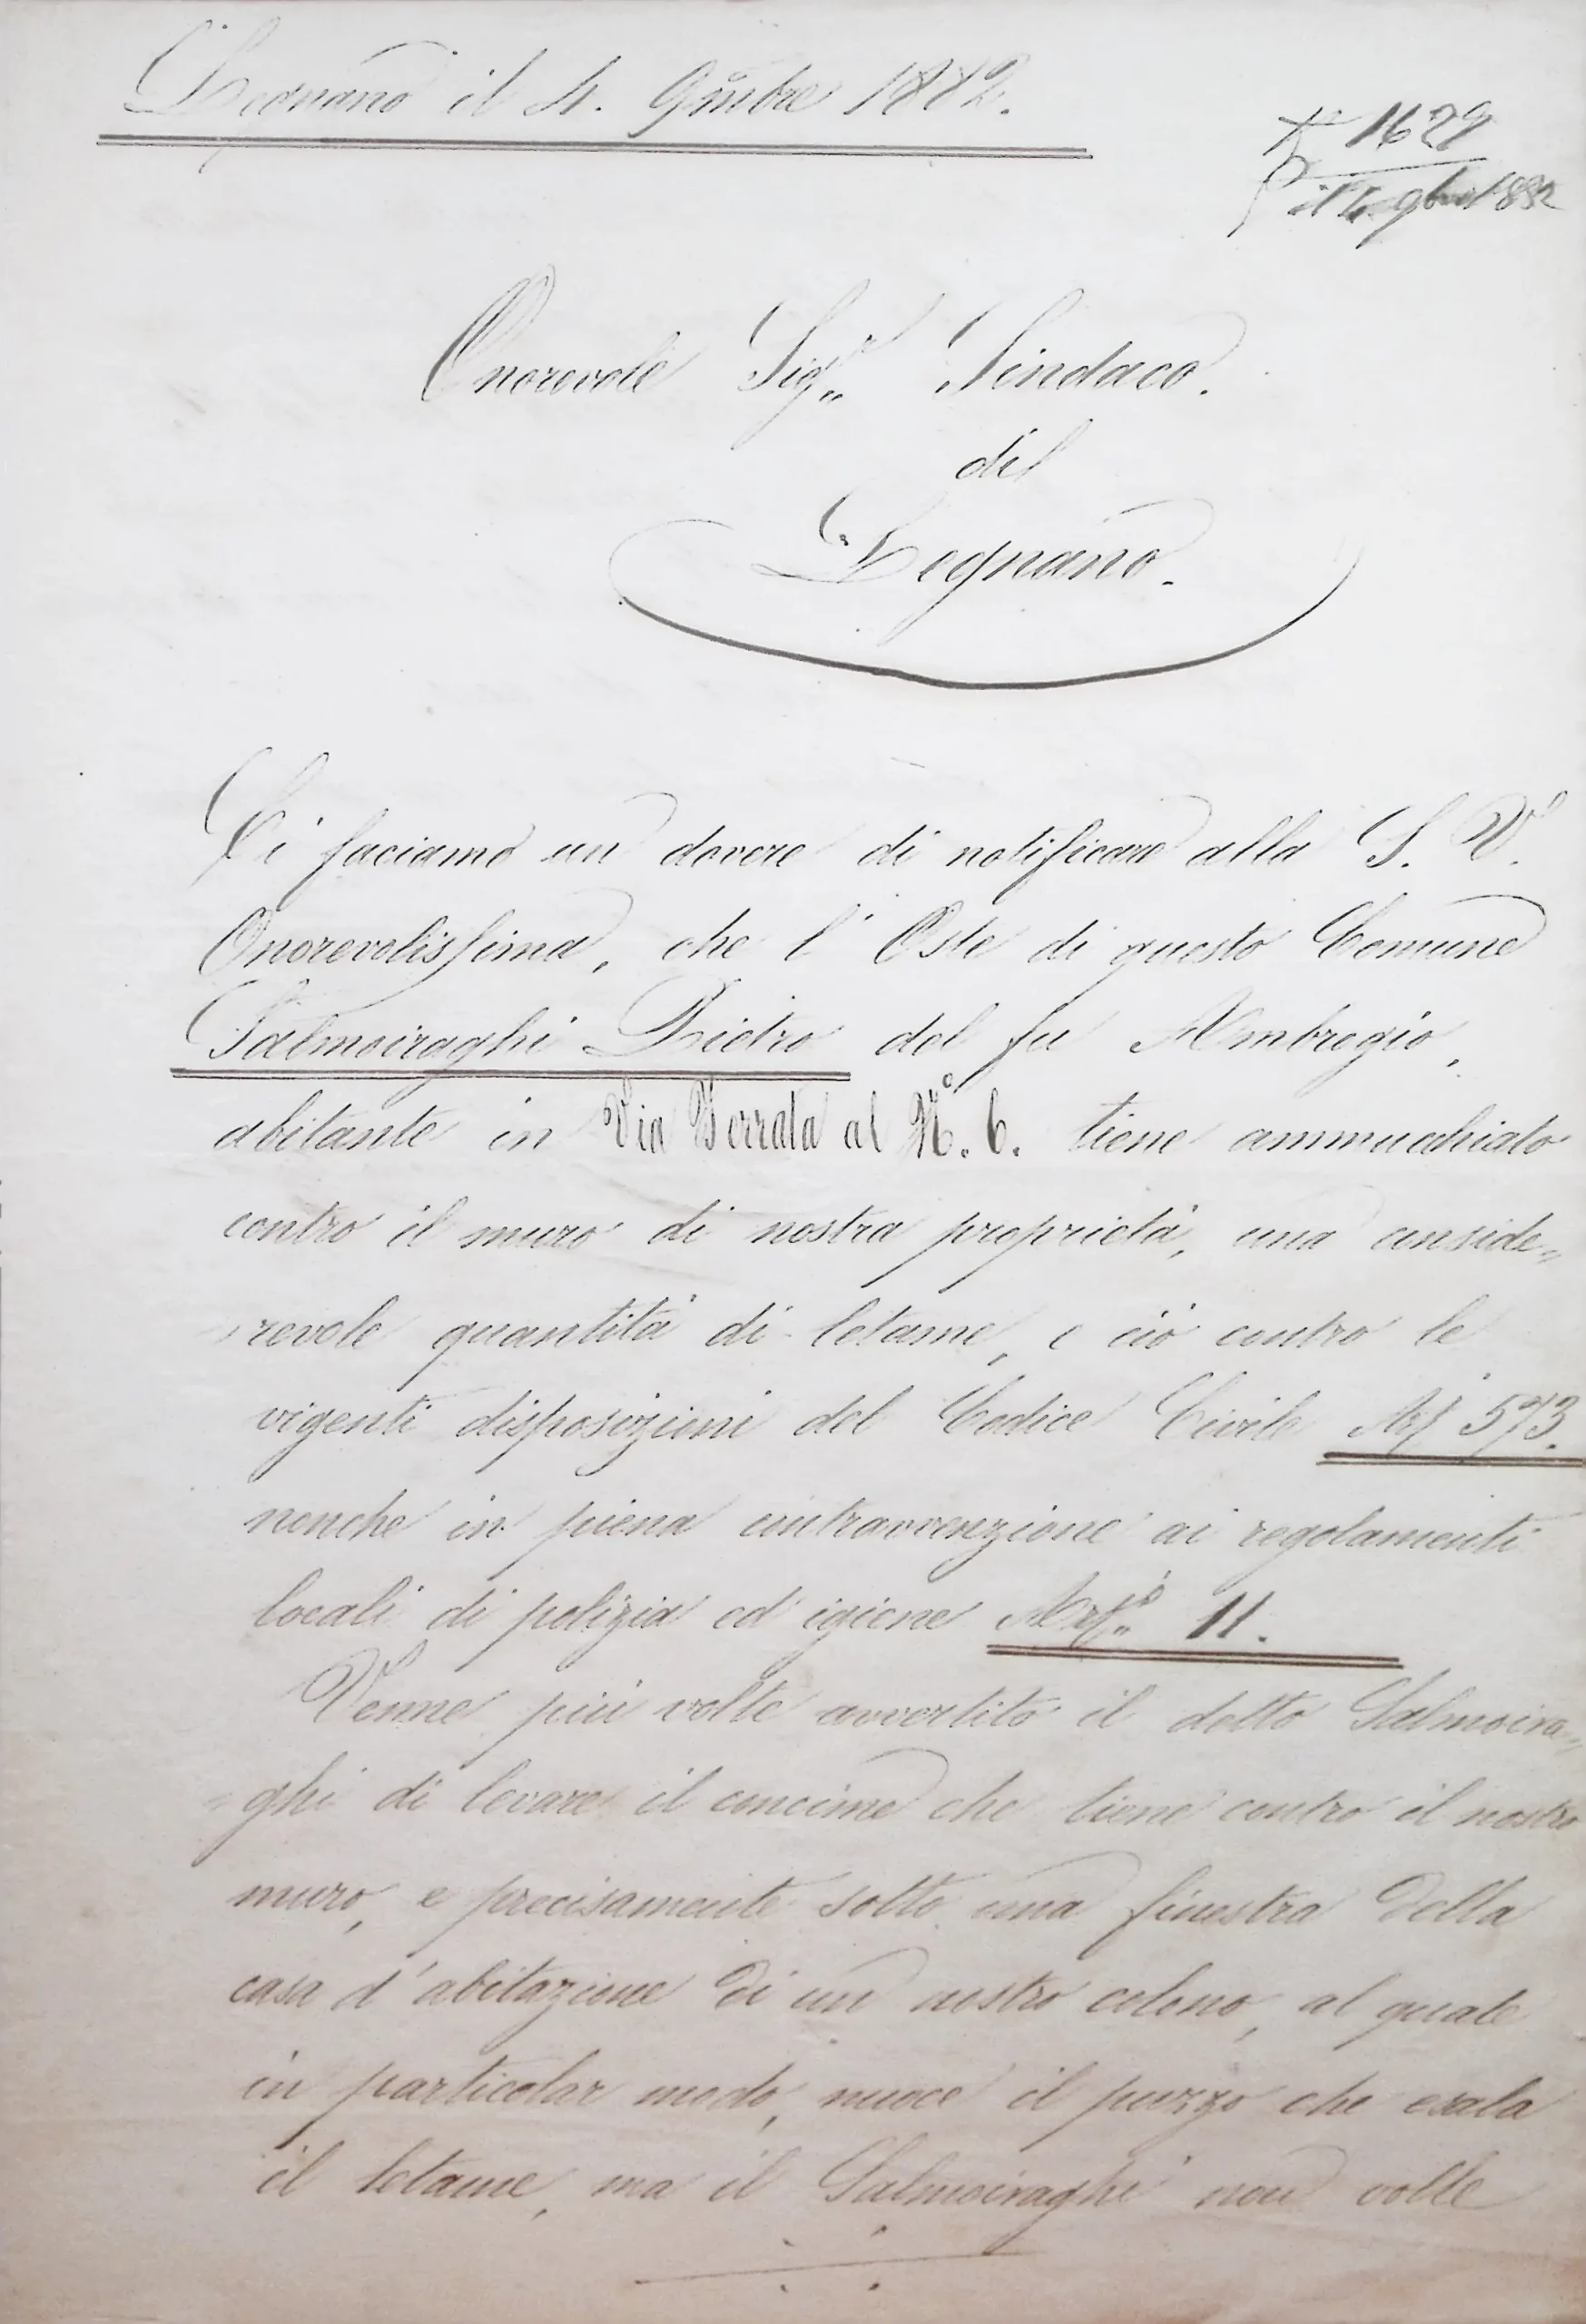 Legnano il 4. 9mbre 1882.
N° 1629
il 4 9bre 1882
Onorevole Sigr. Sindaco.
di
Legnano.
Ci faciamo un dovere di notificare alla S. V.
Onorevolissima, che l'Oste di questo Comune
Salmoiraghi Pietro del fu Ambrogio,
abitante in Via Ferrata al N°. 6. tiene ammucchiato
contro il muro di nostra proprietà, una conside„
revole quantità di letame, e ciò contro le
vigenti disposizioni del Codice Civile Art 573.
nonche in piena contravvenzione ai regolamenti
locali di polizia ed igiene Arto. 11.
Venne più volte avvertito il detto Salmoira„
„ghi di levare il concime che tiene contro il nostro
muro, e precisamente sotto una finestra della
casa d'abitazione di un nostro colono, al quale
in particolar modo, nuoce il puzzo che esala
il letame, ma il Salmoiraghi non volle